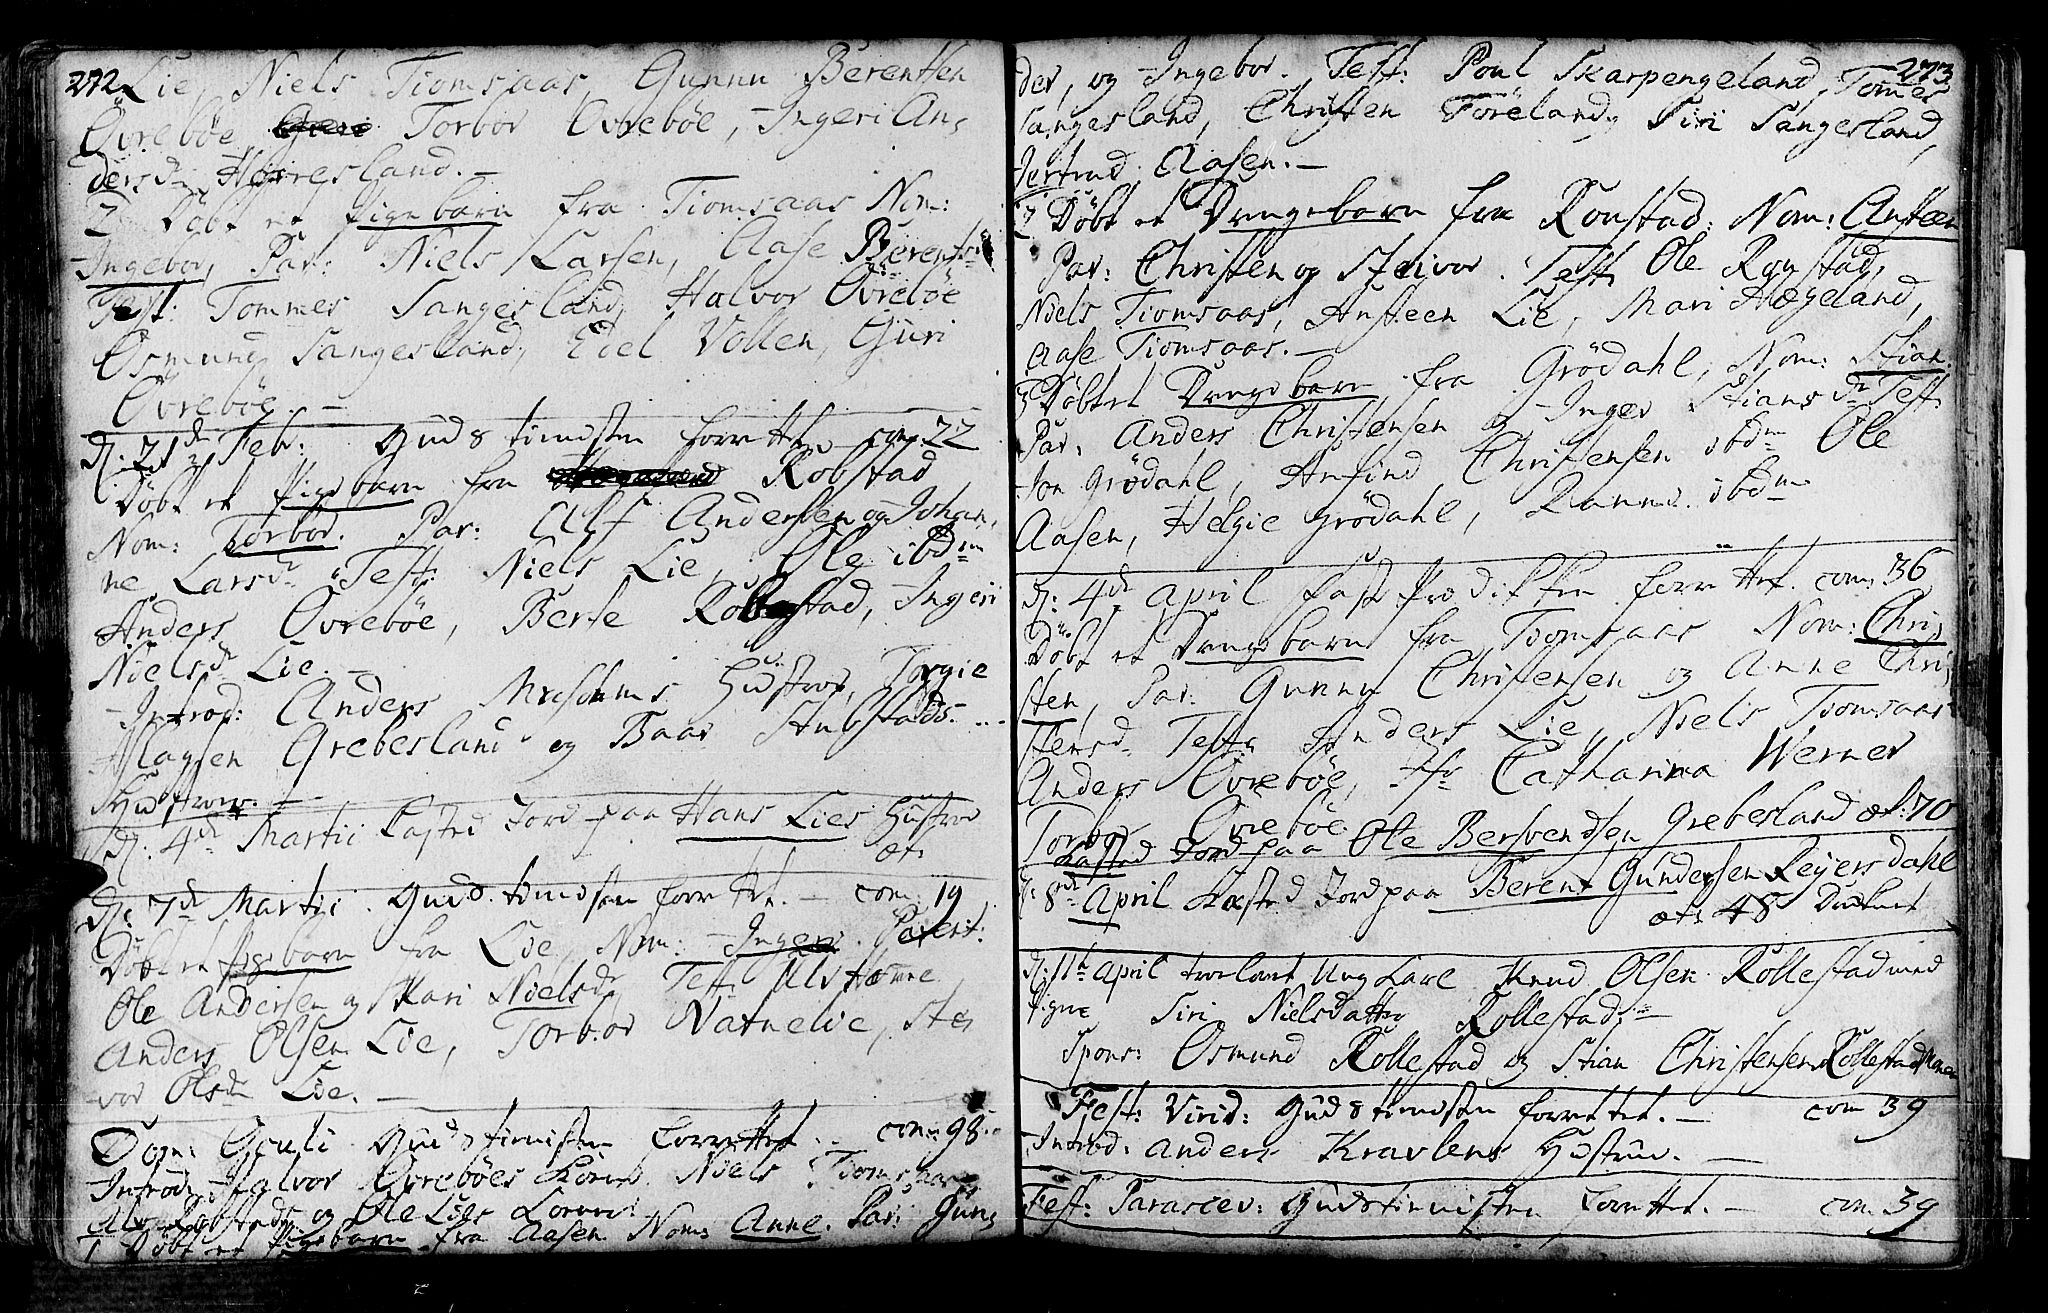 272. Lie, Niels Tiomsaas, Gunnu Berentsen
Övreböe, Torbor Övreböe, Ingeri An,
dersd. Horresland. –
2 Döbt et Pigebarn fra Tiomsaas Nom:
Ingebor, Par: Niels Larsen, Aase Berents
Test: Tommes Sangesland, Halvor Övreböe
Osmund Sangesland, Edel Vollen, Guri
Övreböe. –
d. 21de Febr: Gudstienesten forrettet com. 22
Döbt et Pigebarn fra Robstad
Nom: Torbor. Par: Alf Andersen og Johan,
ne Larsdr Test: Niels Lie, Ole ibdm
Anders Övreböe, Berte Robstad, Ingeri
Nielsdr Lie. –
Introd: Anders Hustroe, Torgie
Aslagsen Grebesland og Baar Stubstads
Hustroer. –
d. 4de Martii Kasted Jord paa Hans Lies Hustroe
æt:
d: 7de Martii Gudstienesten forrettet. – com. 19
Döbt et Pigebarn fra Lie, Nom: Ingeri. Parent:
Ole Andersen og Kari Nielsdr Test:
Anders Olsen Lie, Torbor Natvelie, Stei
vor Olsdr Lie. –
Dom: Oculi Gudstienesten forrettet. – com: 98.
Introd: Halvor Övreböes Kone Niels Tiomsaas
Alv Robstads og Ole Lies Koner
1 Döbt et Pigebarn fra Aasen Nom: Anne. Par: Gun,
273
der, og Ingebor. Test: Poul Skarpengeland, Tomes
Sangesland, Christen Föreland, Siri Sangesland,
Jertrud Aasen. –
2 Döbt et Drengebarn fra Ronstad: Nom: Ansteen
Par: Christen og Steivor. Test: Ole Ronstad,
Niels Tiomsaas, Ansteen Lie, Mari Hægeland,
Aase Tiomsaas. –
3 Döbt et Drengebarn fra Grödahl, Nom: Stian:
Par: Anders Christensen og Inger Stiansdr Test:
Jon Grödahl, Anfind Christensen ibdm Ole
Aasen, Helgie Grödahl, ibdm
d: 4de April forrettet. com. 36
Döbt et Drengebarn fra Tiomsaas Nom: Chri,
sten, Par: Gunnu Christensen og Anne Chri,
stensd. Test: Anders Lie, Niels Tiomsaas
Anders Övreböe, Jfr Catharina Werner
Torbor Övreböe.
Kasted Jord paa Ole Bersvendsen Grebesland æt: 70
d: 8de April Kasted Jord paa Berent Gundersen Reiersdahl
æt: 48 Druknet
d: 11te April trolovet Ung Karl Knud Olsen Rollestad med
Pigen Siri Nielsdatter Rollestad, –
Spons: Osmund Rollestad og Stian Christensen Rollestad
Fest: Virid: Gudstienesten forrettet. – com 39
Introd: Anders Kravlens Hustrue. –
Fest: Parascev: Gudstienesten forrettet. – com. 39